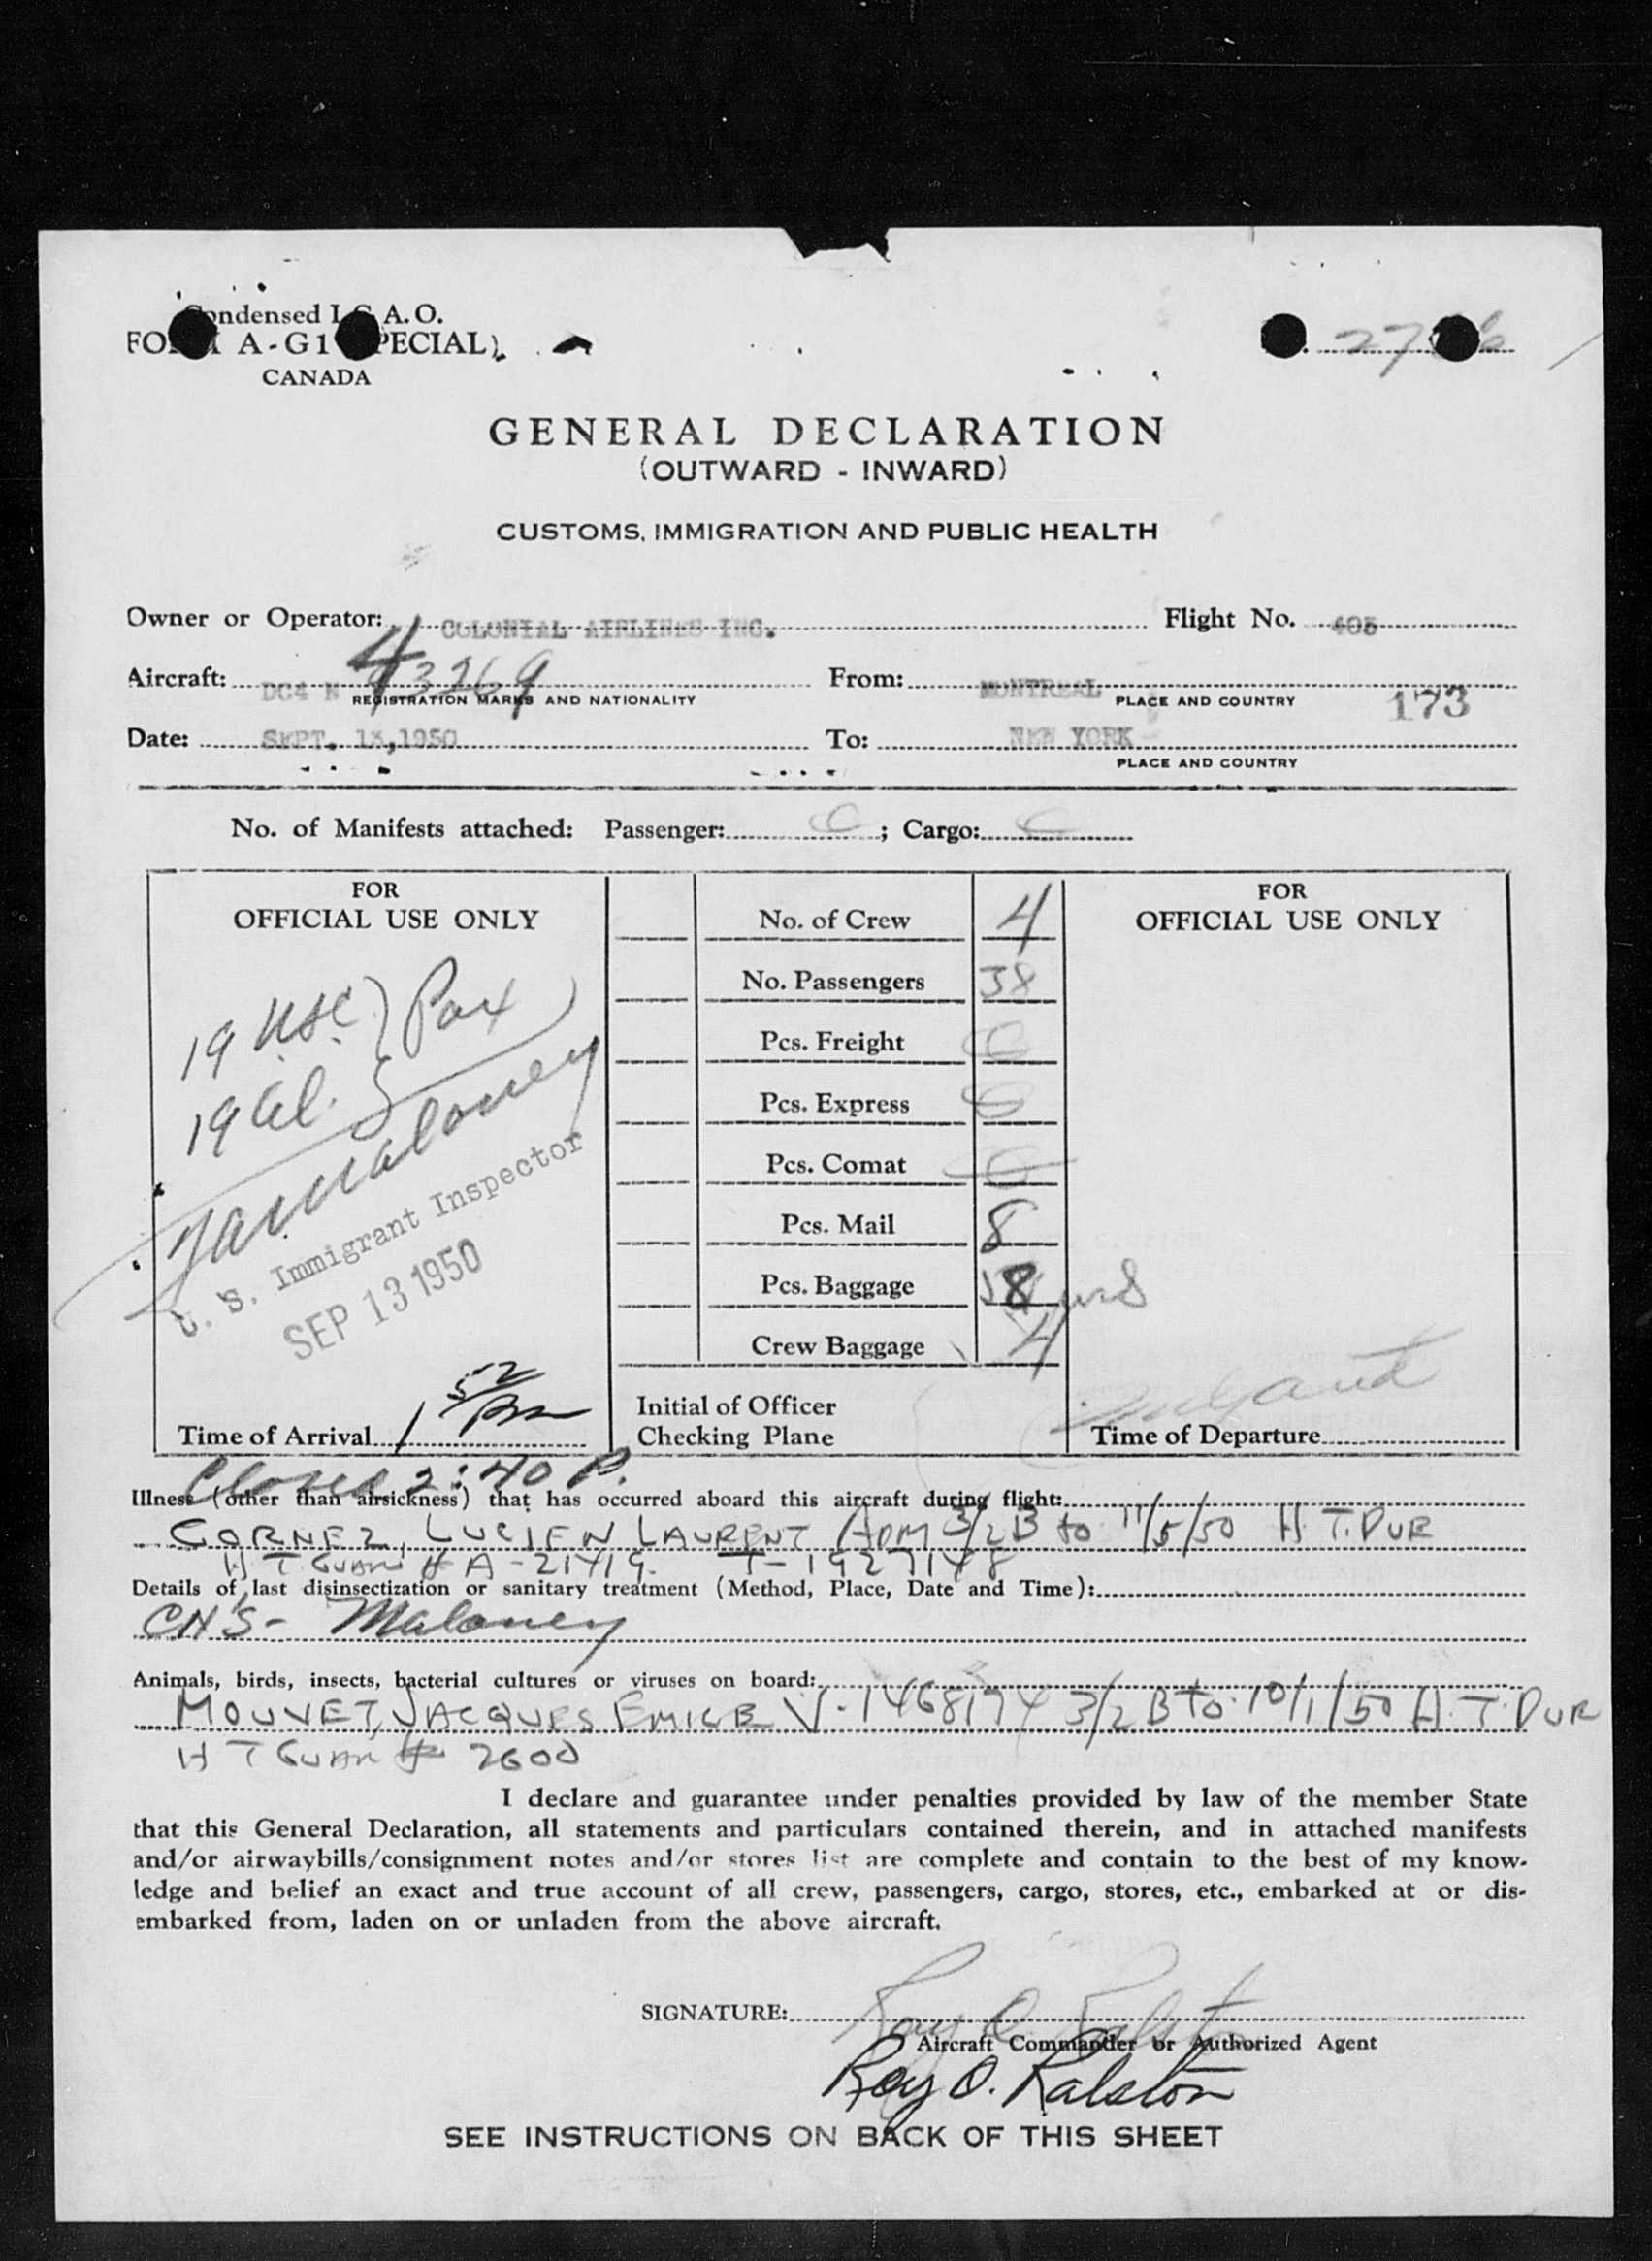 Condensed I.C.A.O.
FORM A-G1 (SPECIAL)
CANADA
GENERAL DECLARATION
(OUTWARD - INWARD)
CUSTOMS, IMMIGRATION AND PUBLIC HEALTH
Owner or Operator: COLONIAL AIRLINES INC. Flight No. 403
Aircraft: DC4 N 43269 From: MONTREAL
REGISTRATION MARKS AND NATIONALITY PLACE AND COUNTRY 173
Date: SEPT. 13, 1950 To: NEW YORK
PLACE AND COUNTRY
No. of Manifests attached: Passenger: 0; Cargo:
FOR
OFFICIAL USE ONLY
19 USC } Pax
19 al.
Maloney
U. S. Immigrant Inspector
SEP 13 1950
Time of Arrival 1 52 Pm
Closed 2:40 P.
No. of Crew 4
No. Passengers 38
Pcs. Freight
Pcs. Express
Pcs. Comat
Pcs. Mail 8
Pcs. Baggage
Crew Baggage 4
Initial of Officer
Checking Plane
FOR
OFFICIAL USE ONLY
Time of Departure
Illness (other than airsickness) that has occurred aboard this aircraft during flight:
CORNEZ, LUCIEN LAURENT ADM 3/2 B to 11/5/50 H. T. DUR
H T GUAR # A-21419. T-1927148
Details of last disinsectization or sanitary treatment (Method, Place, Date and Time):
CH'S - Maloney
Animals, birds, insects, bacterial cultures or viruses on board:
MOUVET, JACQUES EMILE V-1468174 3/2 B TO 10/1/50 H. T. DUR
H T GUAR # 2600
I declare and guarantee under penalties provided by law of the member State
that this General Declaration, all statements and particulars contained therein, and in attached manifests
and/or airwaybills/consignment notes and/or stores list are complete and contain to the best of my know-
ledge and belief an exact and true account of all crew, passengers, cargo, stores, etc., embarked at or dis-
embarked from, laden on or unladen from the above aircraft.
SIGNATURE: Roy O. Ralston
Aircraft Commander or Authorized Agent
Roy O. Ralston
SEE INSTRUCTIONS ON BACK OF THIS SHEET